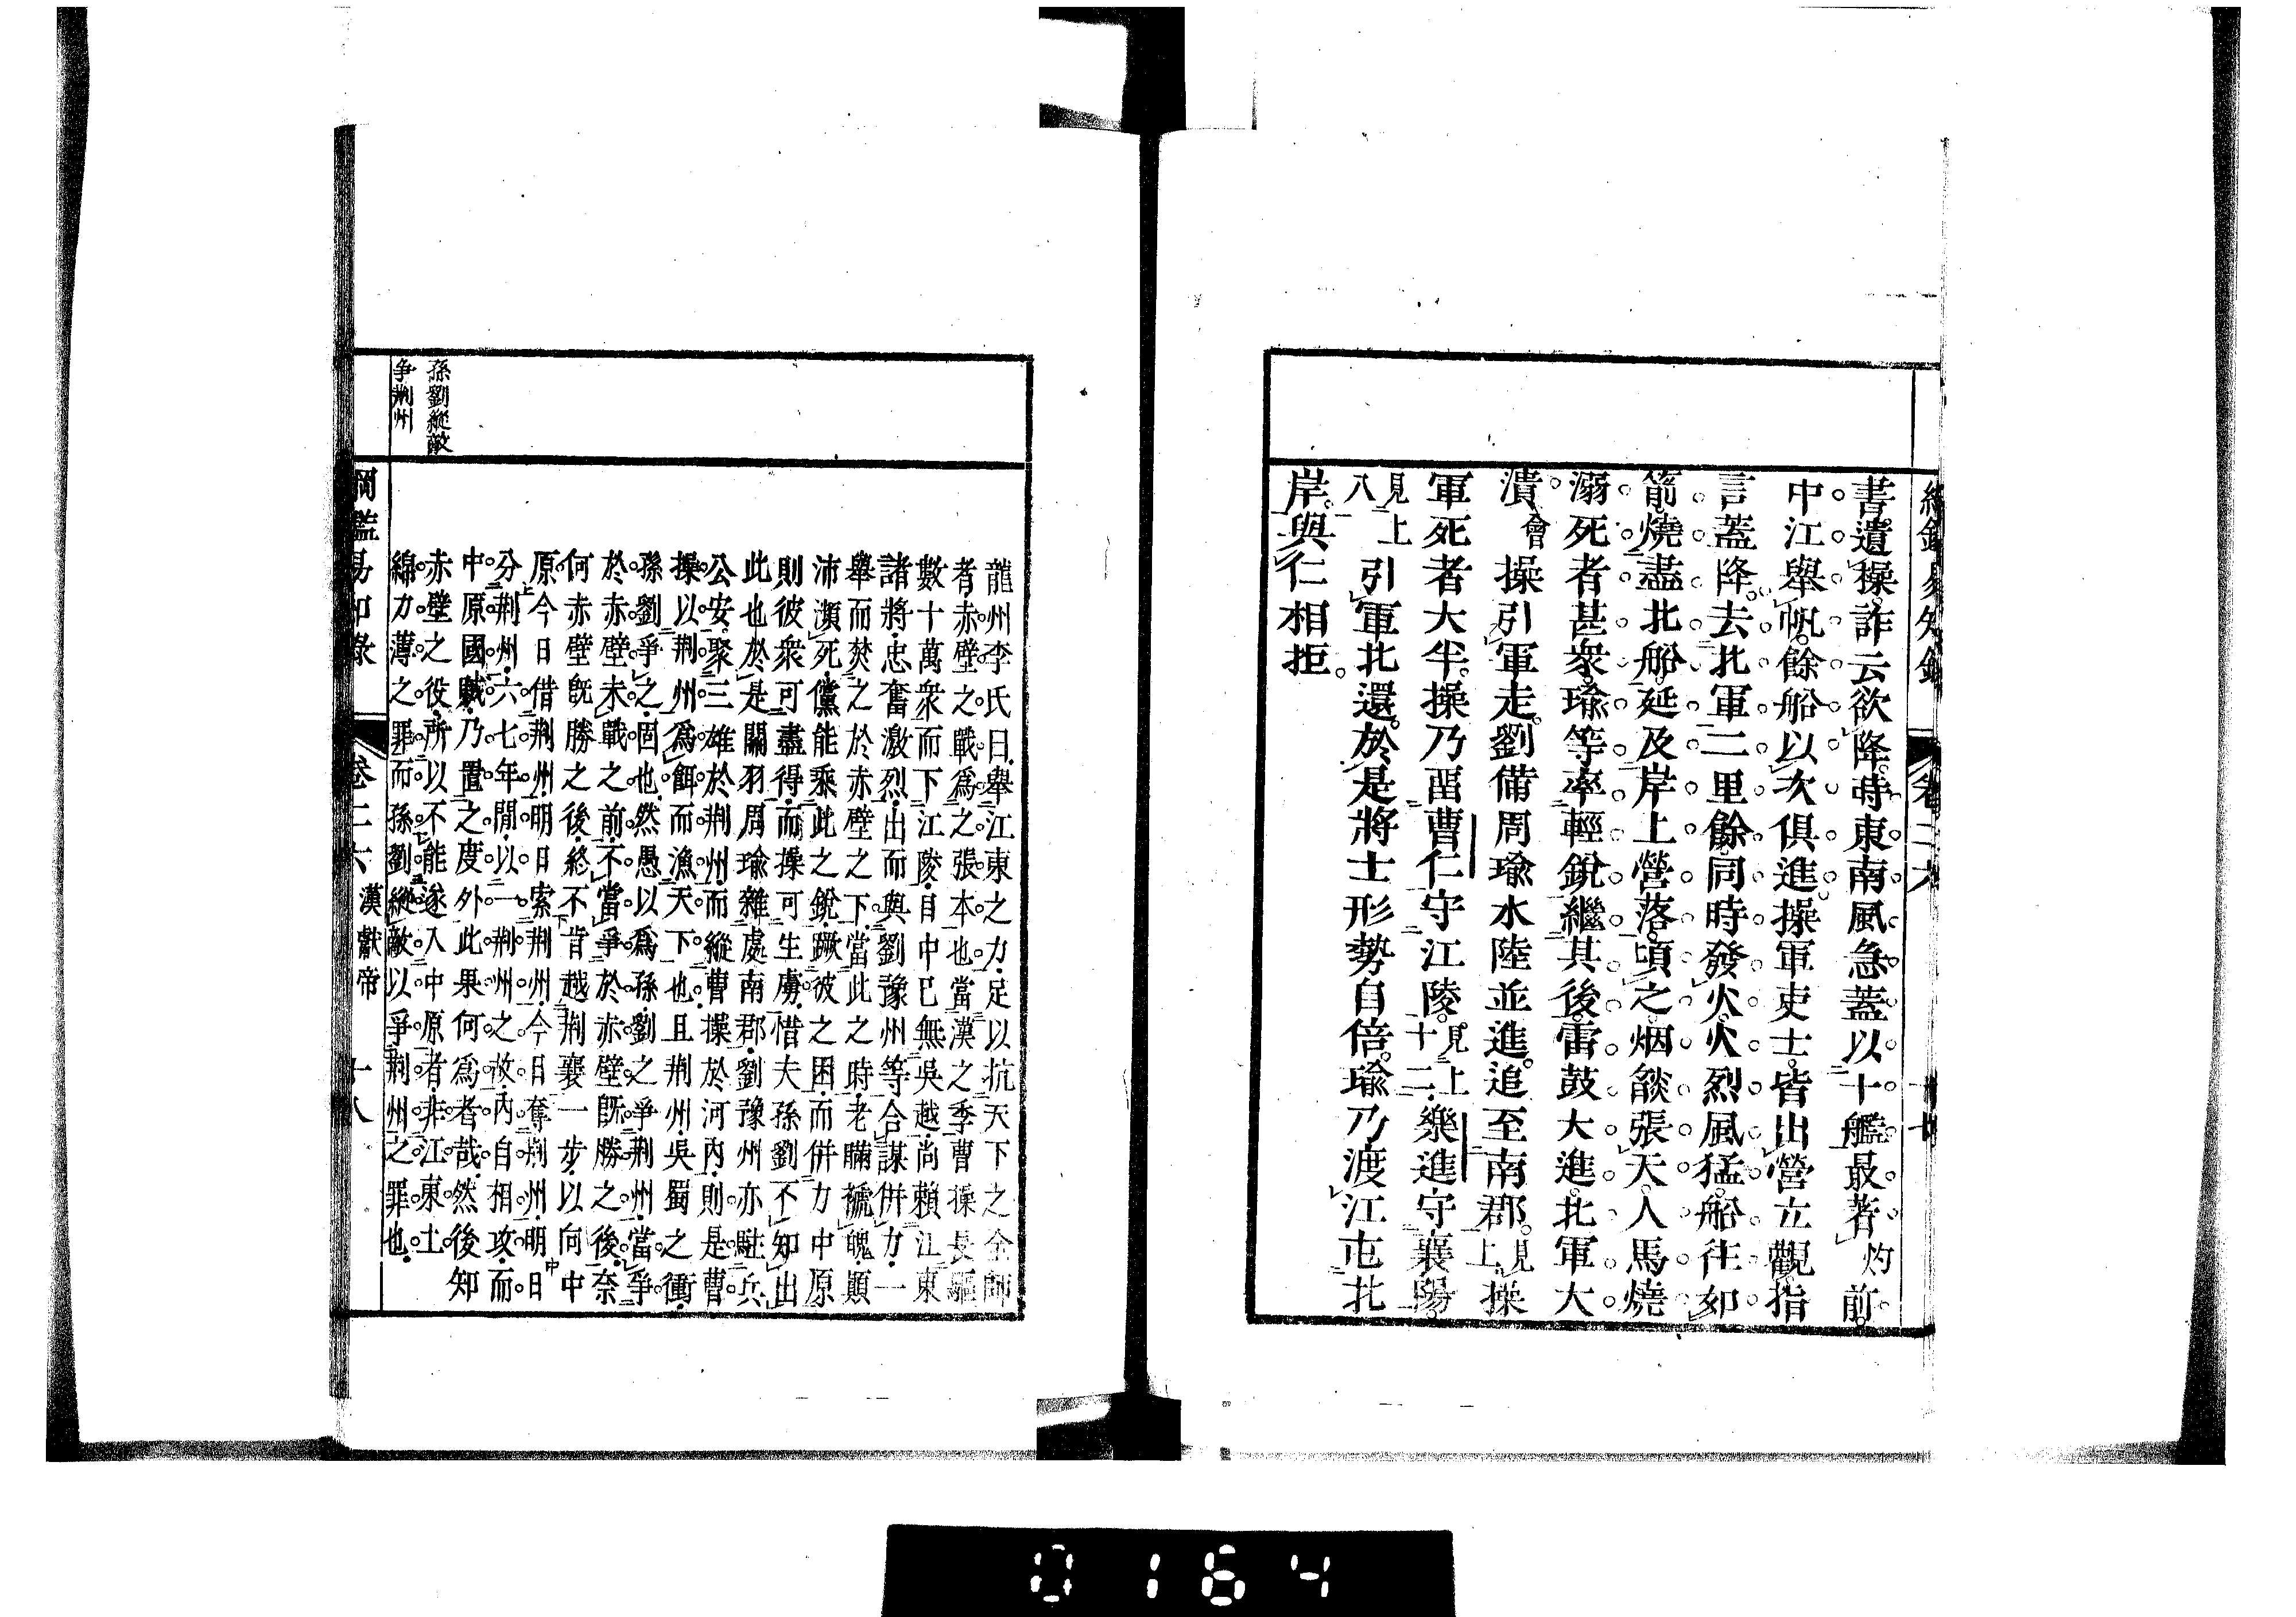 書遺操詐云欲降時東南風急蓋以十艦最著灼前
中江舉帆餘船以次俱進操軍吏士皆出營立觀指
言蓋降去北軍二里餘同時發火火烈風猛船往如
箭燒盡北船延及岸上營落頃之烟燄張天人馬燒
溺死者甚衆瑜等率輕銳繼其後雷鼓大進北軍大
潰會操引軍走劉備周瑜水陸並進追至南郡見上操
軍死者大半操乃畱曹仁守江陵見上十二樂進守襄陽
見上八引軍北還於是將士形勢自倍瑜乃渡江屯北
岸與仁相拒
龍州李氏曰舉江東之力足以抗天下之全師
者赤壁之戰爲之張本也當漢之季曹操長驅
數十萬衆而下江陵目中已無吳越尚賴江東
諸將忠奮激烈出而與劉豫州等合謀併力一
舉而焚之於赤壁之下當此之時老瞞褫魄顚
沛瀕死儻能乘此之銳蹶彼之困而併力中原
則彼衆可盡得而操可生虜惜夫孫劉不知出
此也於是關羽周瑜雜處南郡劉豫州亦駐兵
公安聚三雄於荆州而縱曹操於河內則是曹
操以荆州爲餌而漁天下也且荆州吳蜀之衝
孫劉爭之固也然愚以爲孫劉之爭荆州當爭
於赤壁未戰之前不當爭於赤壁旣勝之後奈
何赤壁旣勝之後終不肯越荆襄一步以向中
原今日借荆州明日索荆州今日奪荆州明日
分荆州六七年閒以一荆州之故內自相攻而
中原國賊乃置之度外此果何爲者哉然後知
赤壁之役所以不能遂入中原者非江東士
綿力薄之罪而孫劉縱敵以爭荆州之罪也
孫劉縱敵
爭荆州
綱鑑易知錄 卷二六 漢獻帝 十八